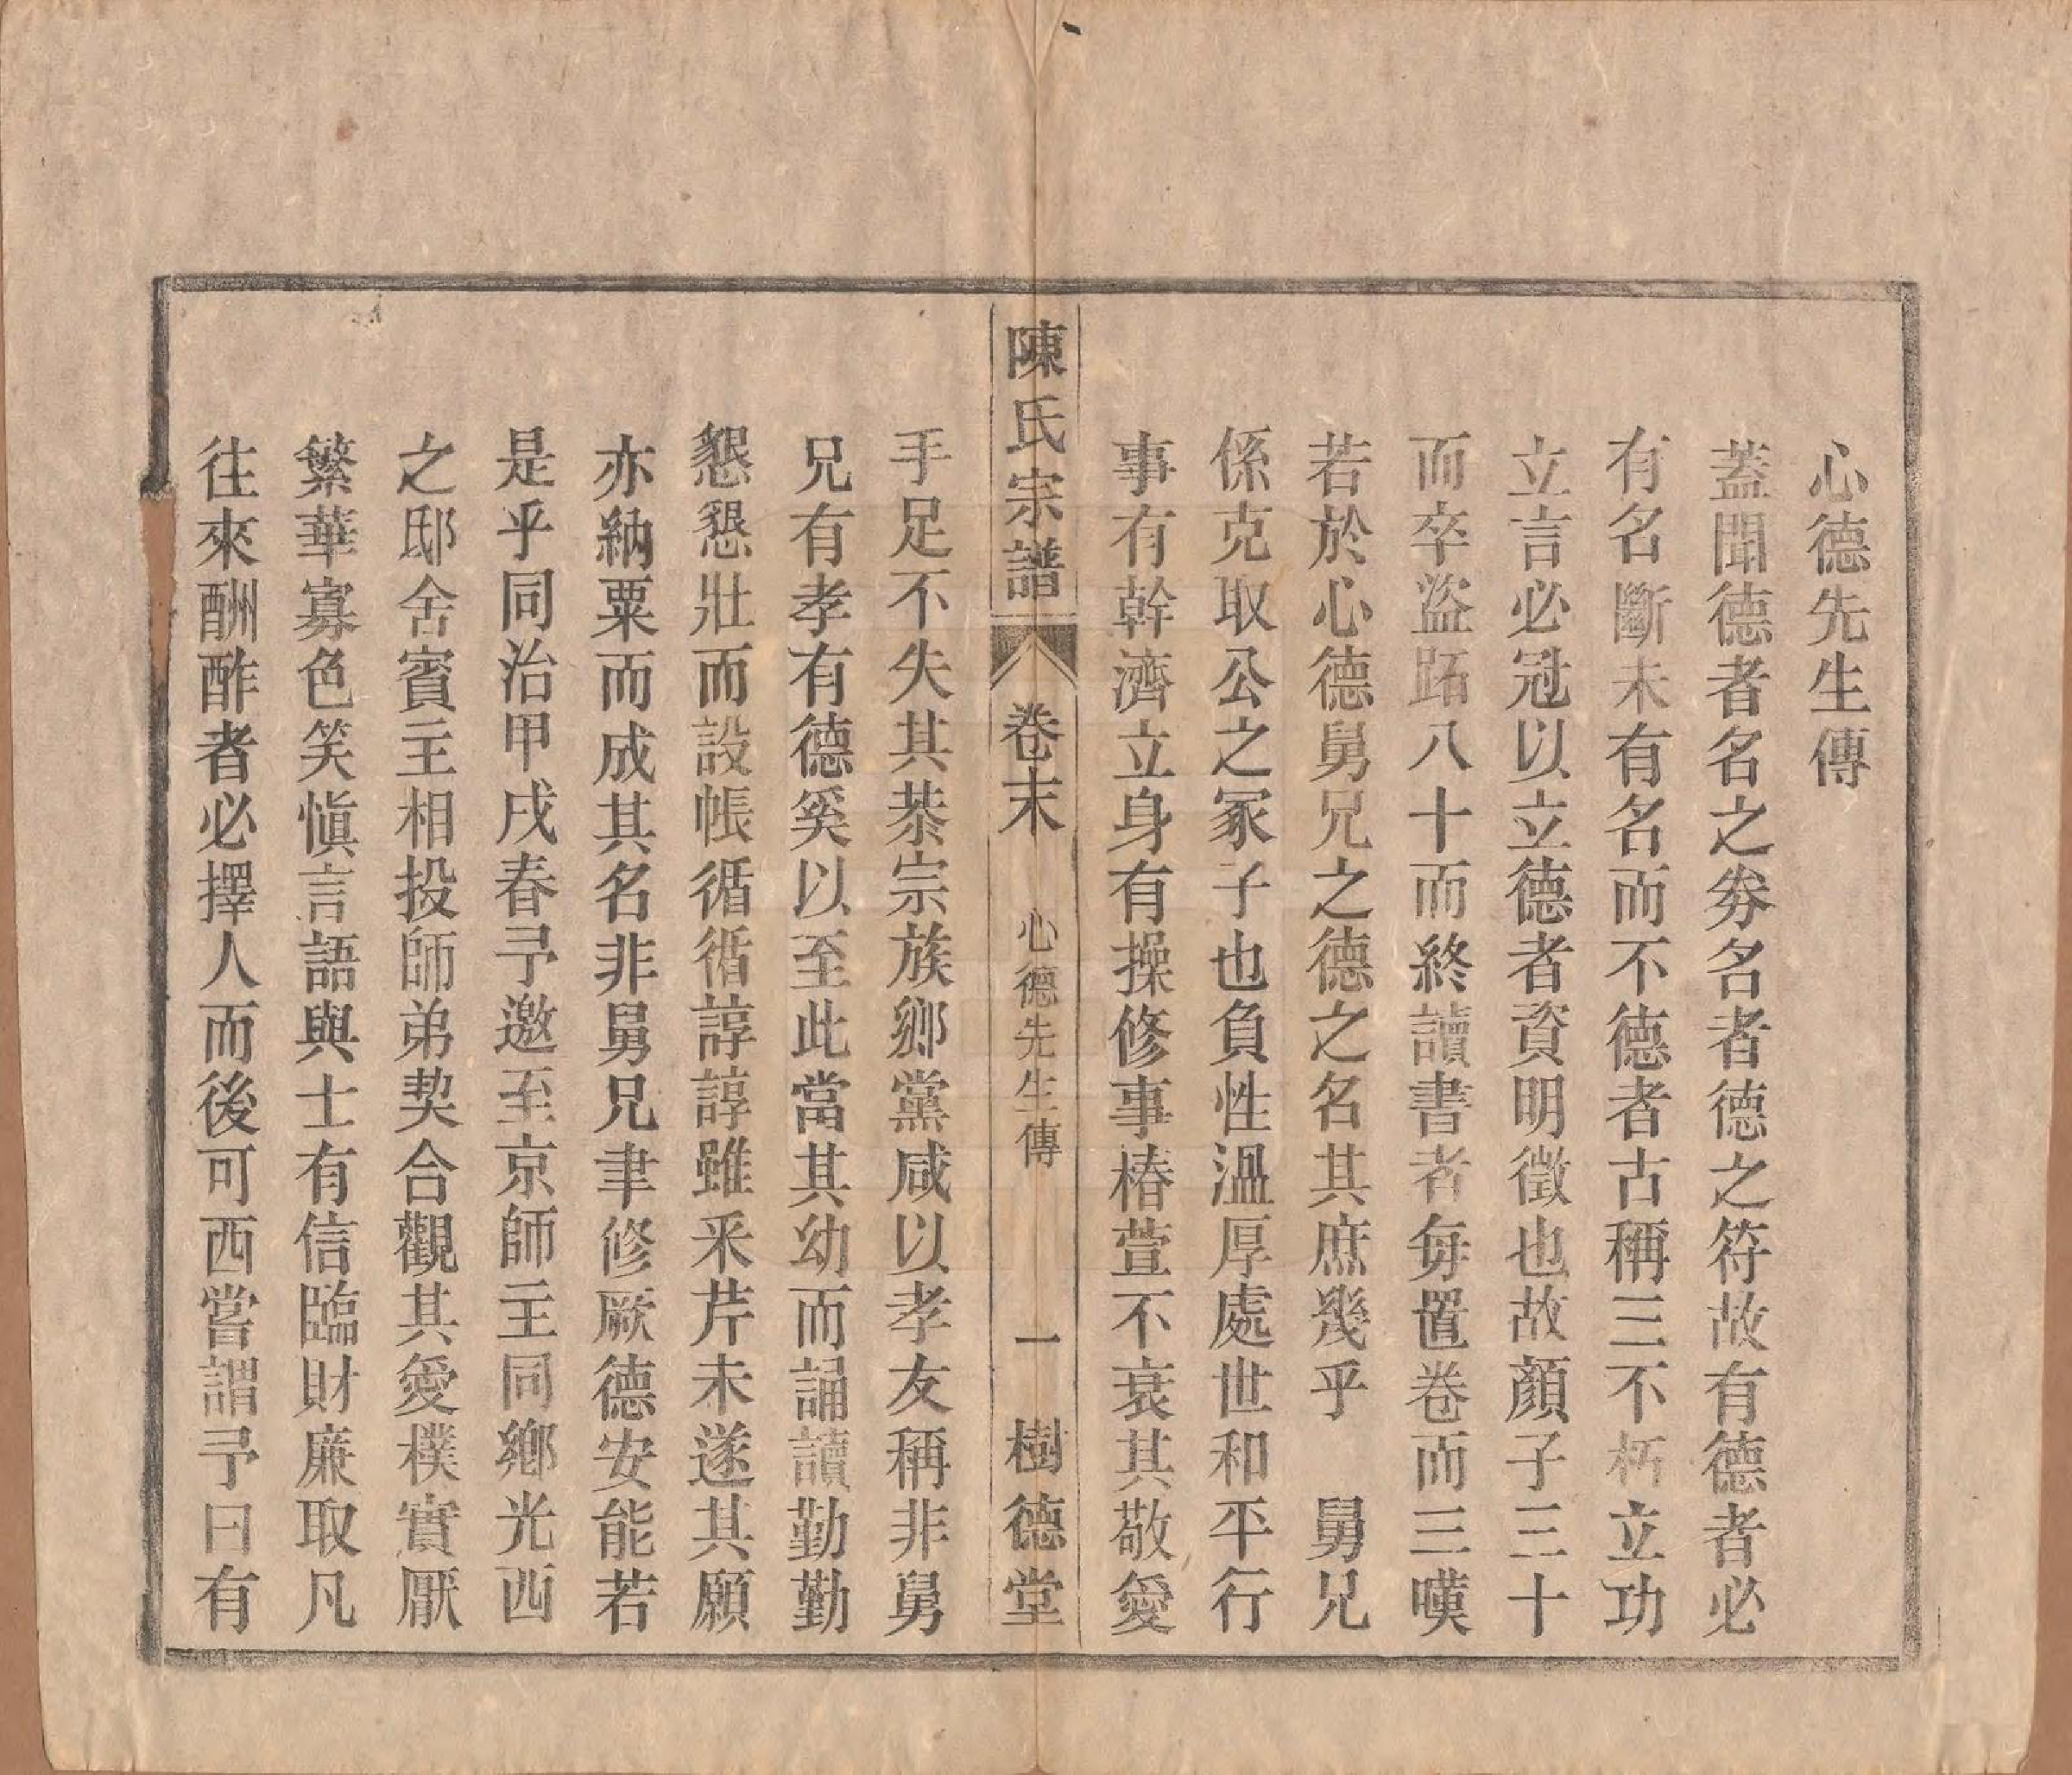 心德先生傳
蓋聞德者名之券名者德之符故有德者必
有名斷未有名而不德者古稱三不朽立功
立言必冠以立德者資明徵也故顏子三十
而卒盜跖八十而終讀書者每置卷而三嘆
若於心德舅兄之德之名其庶幾乎　舅兄
係克取公之冢子也負性溫厚處世和平行
事有幹濟立身有操修事椿萱不衰其敬愛
陳氏宗譜　卷末　心德先生傳　一　樹德堂
手足不失其恭宗族鄉黨咸以孝友稱非舅
兄有孝有德奚以至此當其幼而誦讀勤勤
懇懇壯而設帳循循諄諄雖釆芹未遂其願
亦納粟而成其名非舅兄聿修厥德安能若
是乎同治甲戌春予邀至京師主同鄉光西
之邸舍賓主相投師弟契合觀其愛樸實厭
繁華寡色笑慎言語與士有信臨財廉取凡
往來酬酢者必擇人而後可西嘗謂予曰有